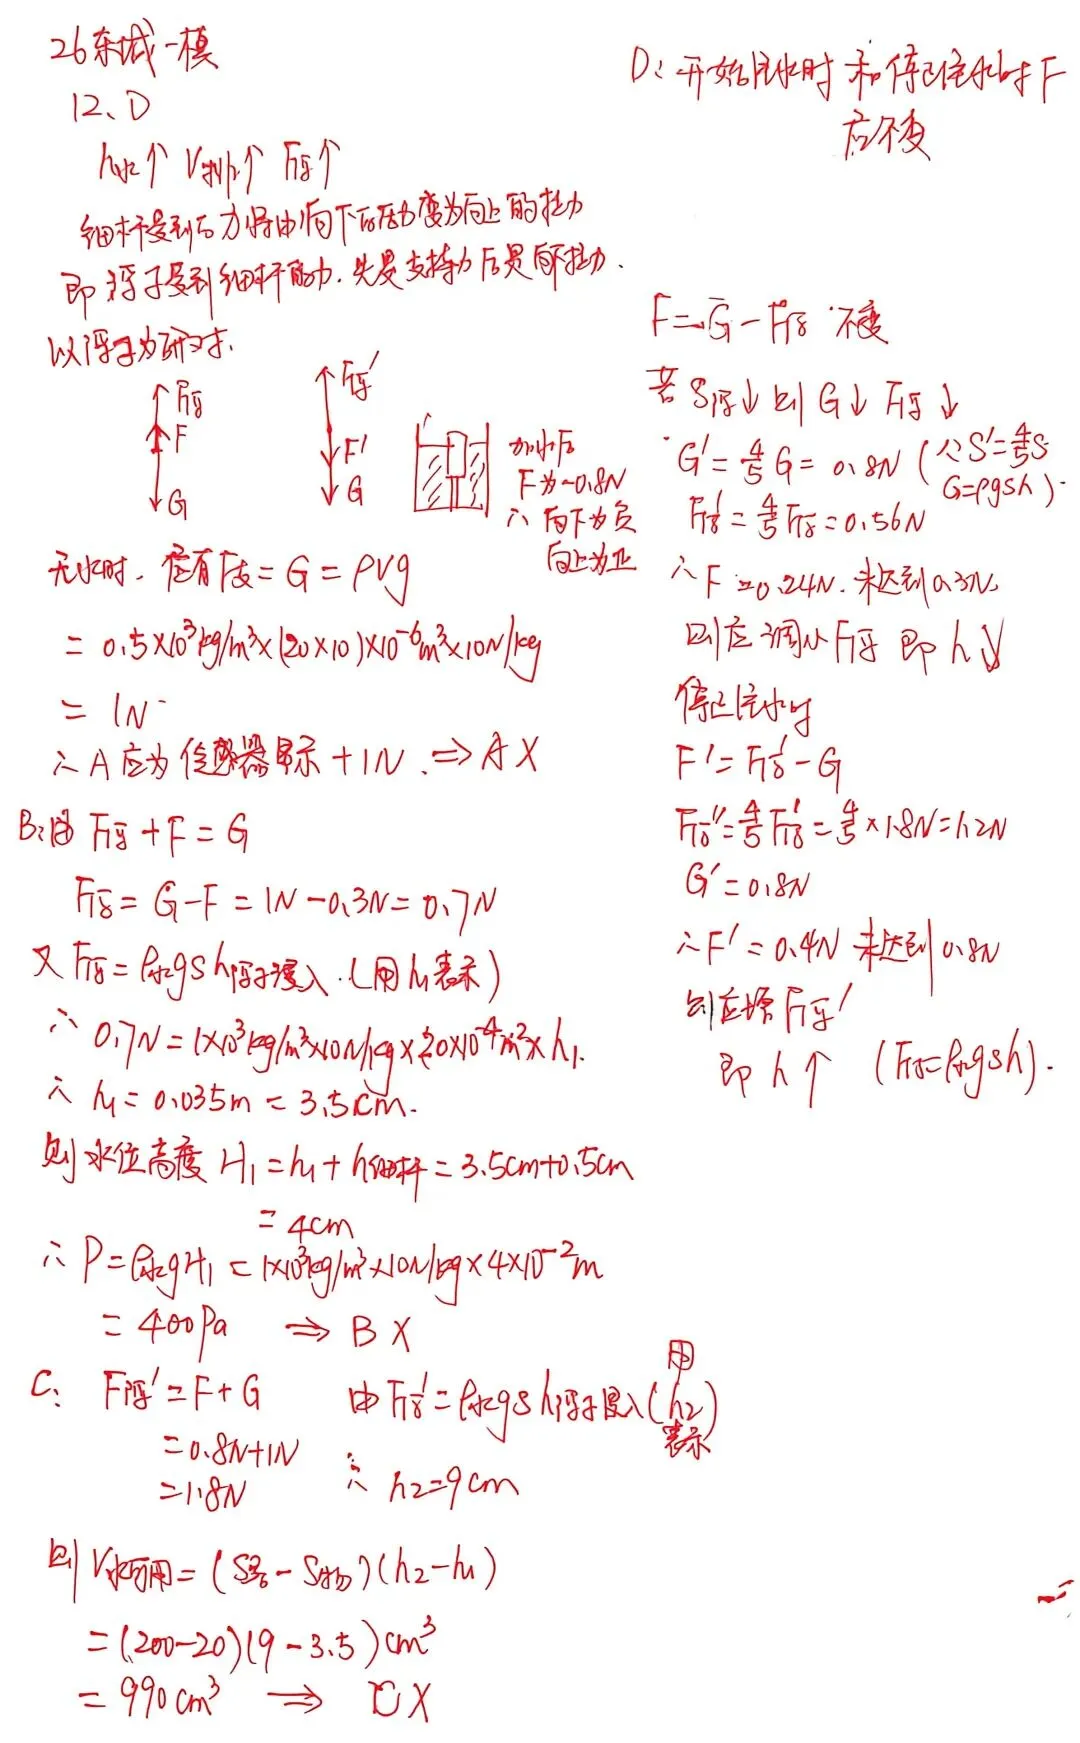 26东城一模
12、D
h水↑ V排↑ F浮↑
细杆受到的力将由向下的压力变为向上的拉力
即浮子受到细杆的力.先是支持力后是向下拉力.
以浮子为研对象.
F浮
F
G
F浮'
F'
G
加水后
F为-0.8N
∴向下为负
向上为正
无水时.应有F支=G=ρVg
=0.5×10³kg/m³×(20×10)×10⁻⁶m³×10N/kg
=1N
∴A应为传感器显示+1N.⇒A×
B:由F浮+F=G
F浮=G-F=1N-0.3N=0.7N
又F浮=ρ水gSh浮子浸入.(用h₁表示)
∴0.7N=1×10³kg/m³×10N/kg×20×10⁻⁴m²×h₁.
∴h₁=0.035m=3.5cm.
则水位高度H₁=h₁+h细杆=3.5cm+0.5cm
=4cm
∴P=ρ水gH₁=1×10³kg/m³×10N/kg×4×10⁻²m
=400Pa ⇒ B×
C: F浮'=F+G
=0.8N+1N
=1.8N
由F浮'=ρ水gSh浮子浸入(用h₂表示)
∴h₂=9cm
则V水可用=(S容-S物)(h₂-h₁)
=(200-20)(9-3.5)cm³
=990cm³ ⇒ C×
D:开始注水时和停止注水时F
应不变
F=G-F浮 不变
若S浮↓则G↓F浮↓
G'=4/5G=0.8N(∵S'=4/5S
G=ρgsh).
F浮'=4/5F浮=0.56N
∴F=0.24N.未达到0.3N.
则应调小F浮即h↓
停止注水时
F'=F浮'-G
F浮''=4/5F浮'=4/5×1.8N=1.2N
G'=0.8N
∴F'=0.4N未达到0.8N
则应增F浮'
即h↑ (F浮=ρ水gsh).